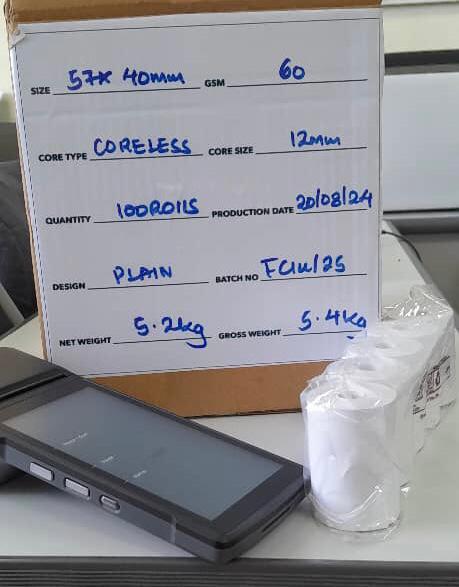 SIZE 57x 40mm GSM 60
CORE TYPE CORELESS CORE SIZE 12mm
QUANTITY 100ROllS PRODUCTION DATE 20/08/24
DESIGN PLAIN BATCH NO
NET WEIGHT 5.2kg GROSS WEIGHT 5.4kg